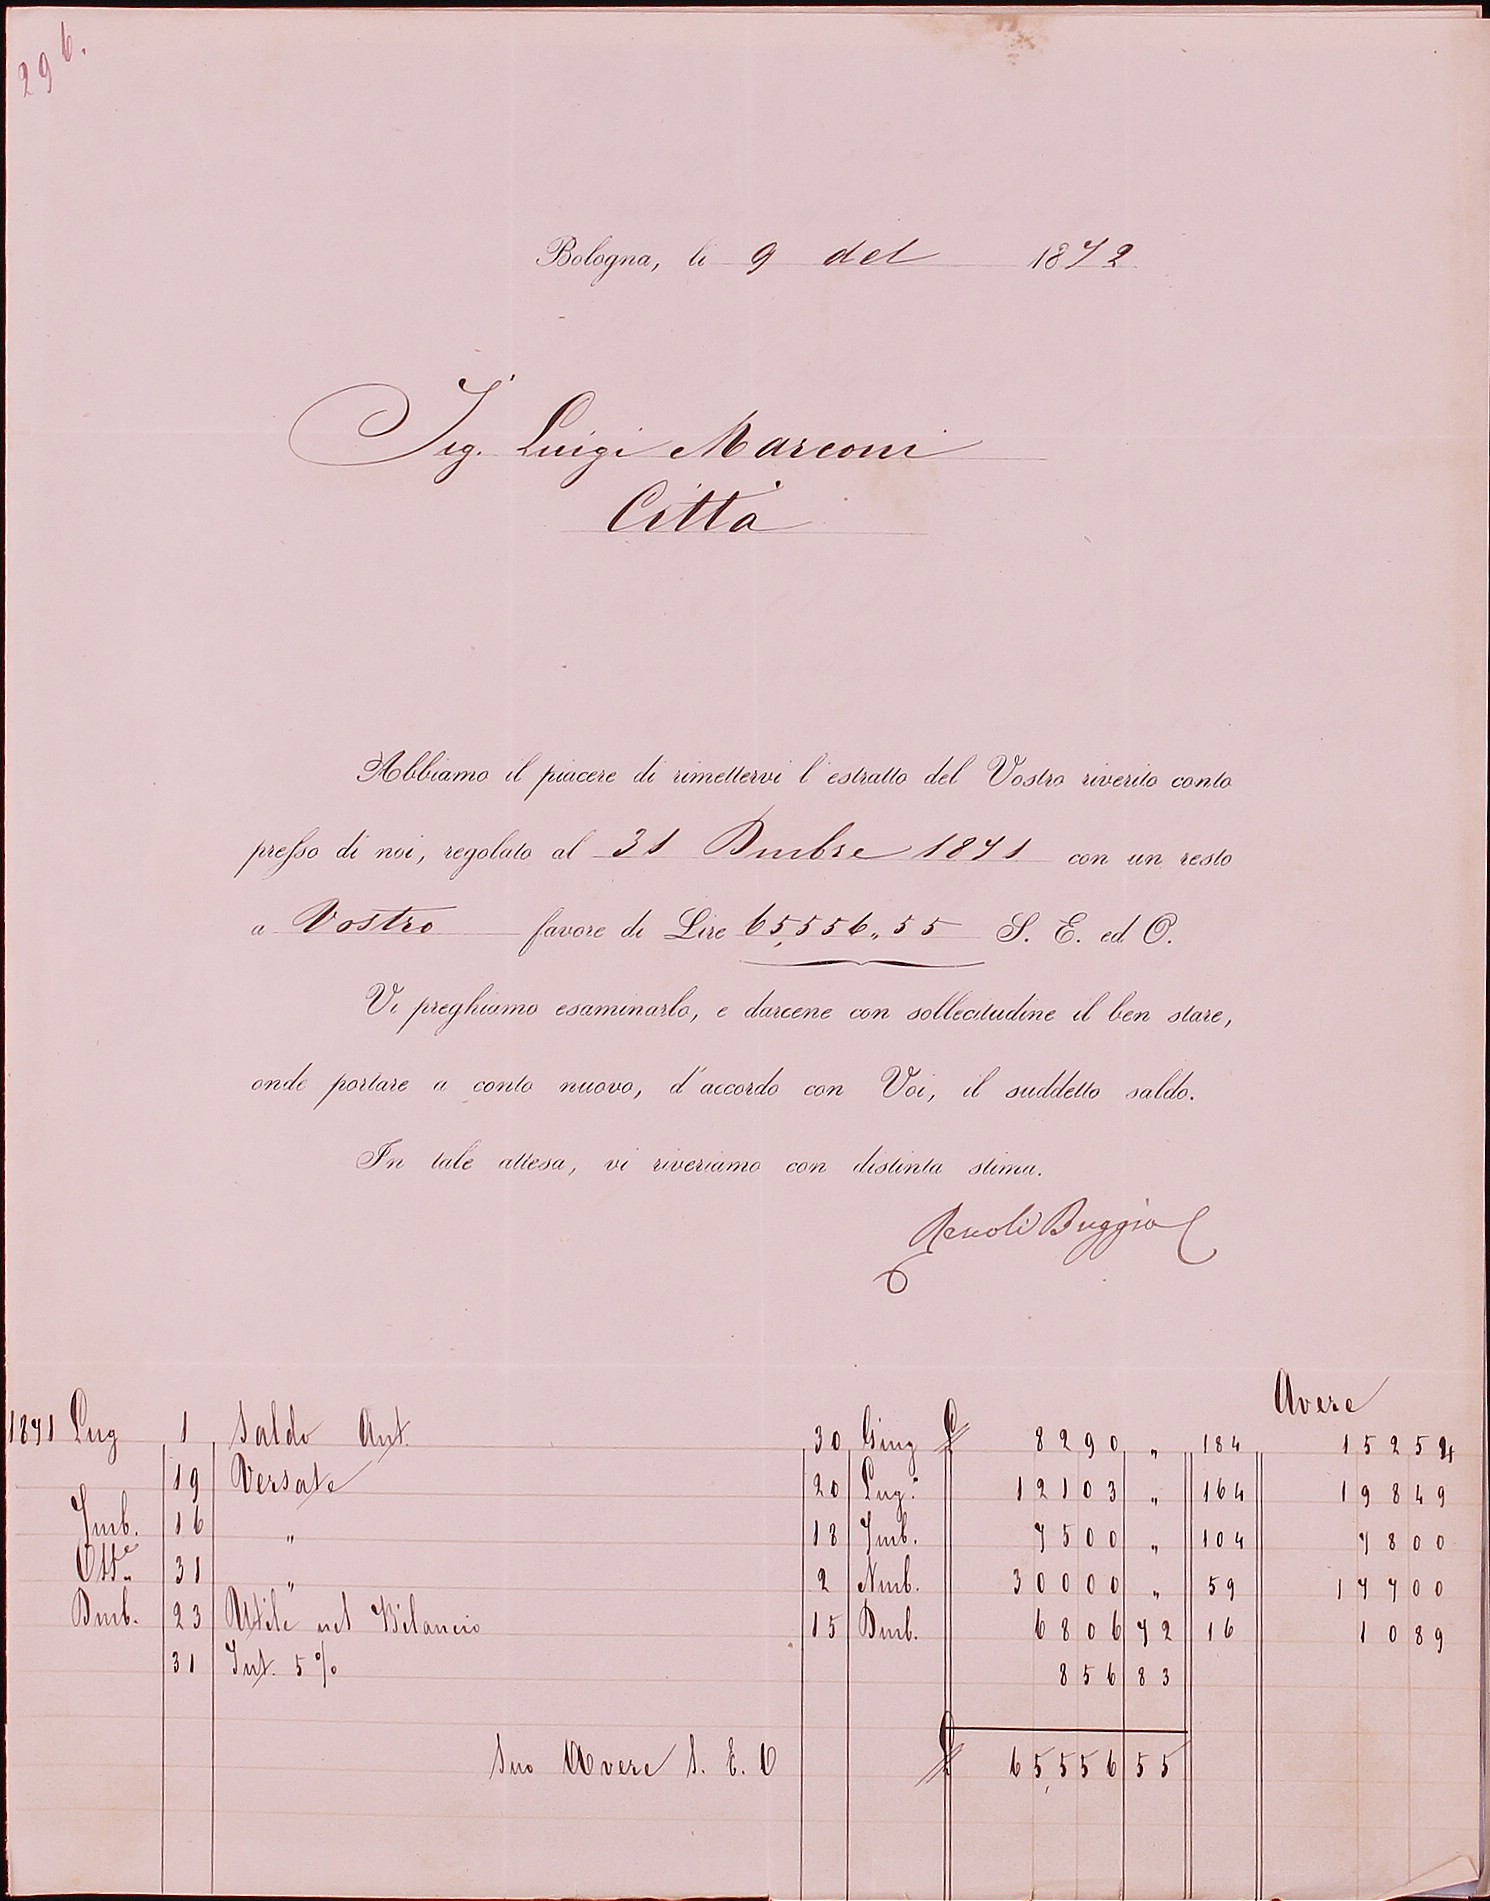 296.
Bologna, li 9 del 1872
Sig. Luigi Marconi
Città
Abbiamo il piacere di rimettervi l'estratto del Vostro riverito conto
presso di noi, regolato al 31 Dmbre 1871 con un resto
a Vostro favore di Lire 65,556,,55 S. E. ed O.
Vi preghiamo esaminarlo, e darcene con sollecitudine il ben stare,
onde portare a conto nuovo, d'accordo con Voi, il suddetto saldo.
In tale attesa, vi riveriamo con distinta stima.
Renoli Buggio C
Avere
1871 Lug 1 Saldo Ant. 30 Giug £ 8290 „ 184 15254
19 Versate 20 Lug.° 12103 „ 164 19849
7mb. 16 „ 18 7mb. 7500 „ 104 7800
Otte 31 „ 2 Nmb. 30000 „ 59 17700
Dmb. 23 Utile nel Bilancio 15 Dmb. 6806 72 16 1089
31 Int. 5% 856 83
Suo Avere S. E. O £ 65,556 55